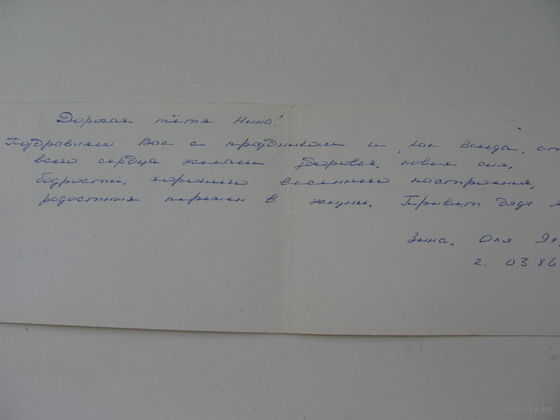 Дорогая тётя Нина!
Поздравляем Вас с праздником и, как всегда, от
всего сердца желаем здоровья, новых сил,
бодрости, хорошего весеннего настроения,
радостных перемен в жизни. Привет дяде
Зина, Оля
2. 03. 86
www.ay.by